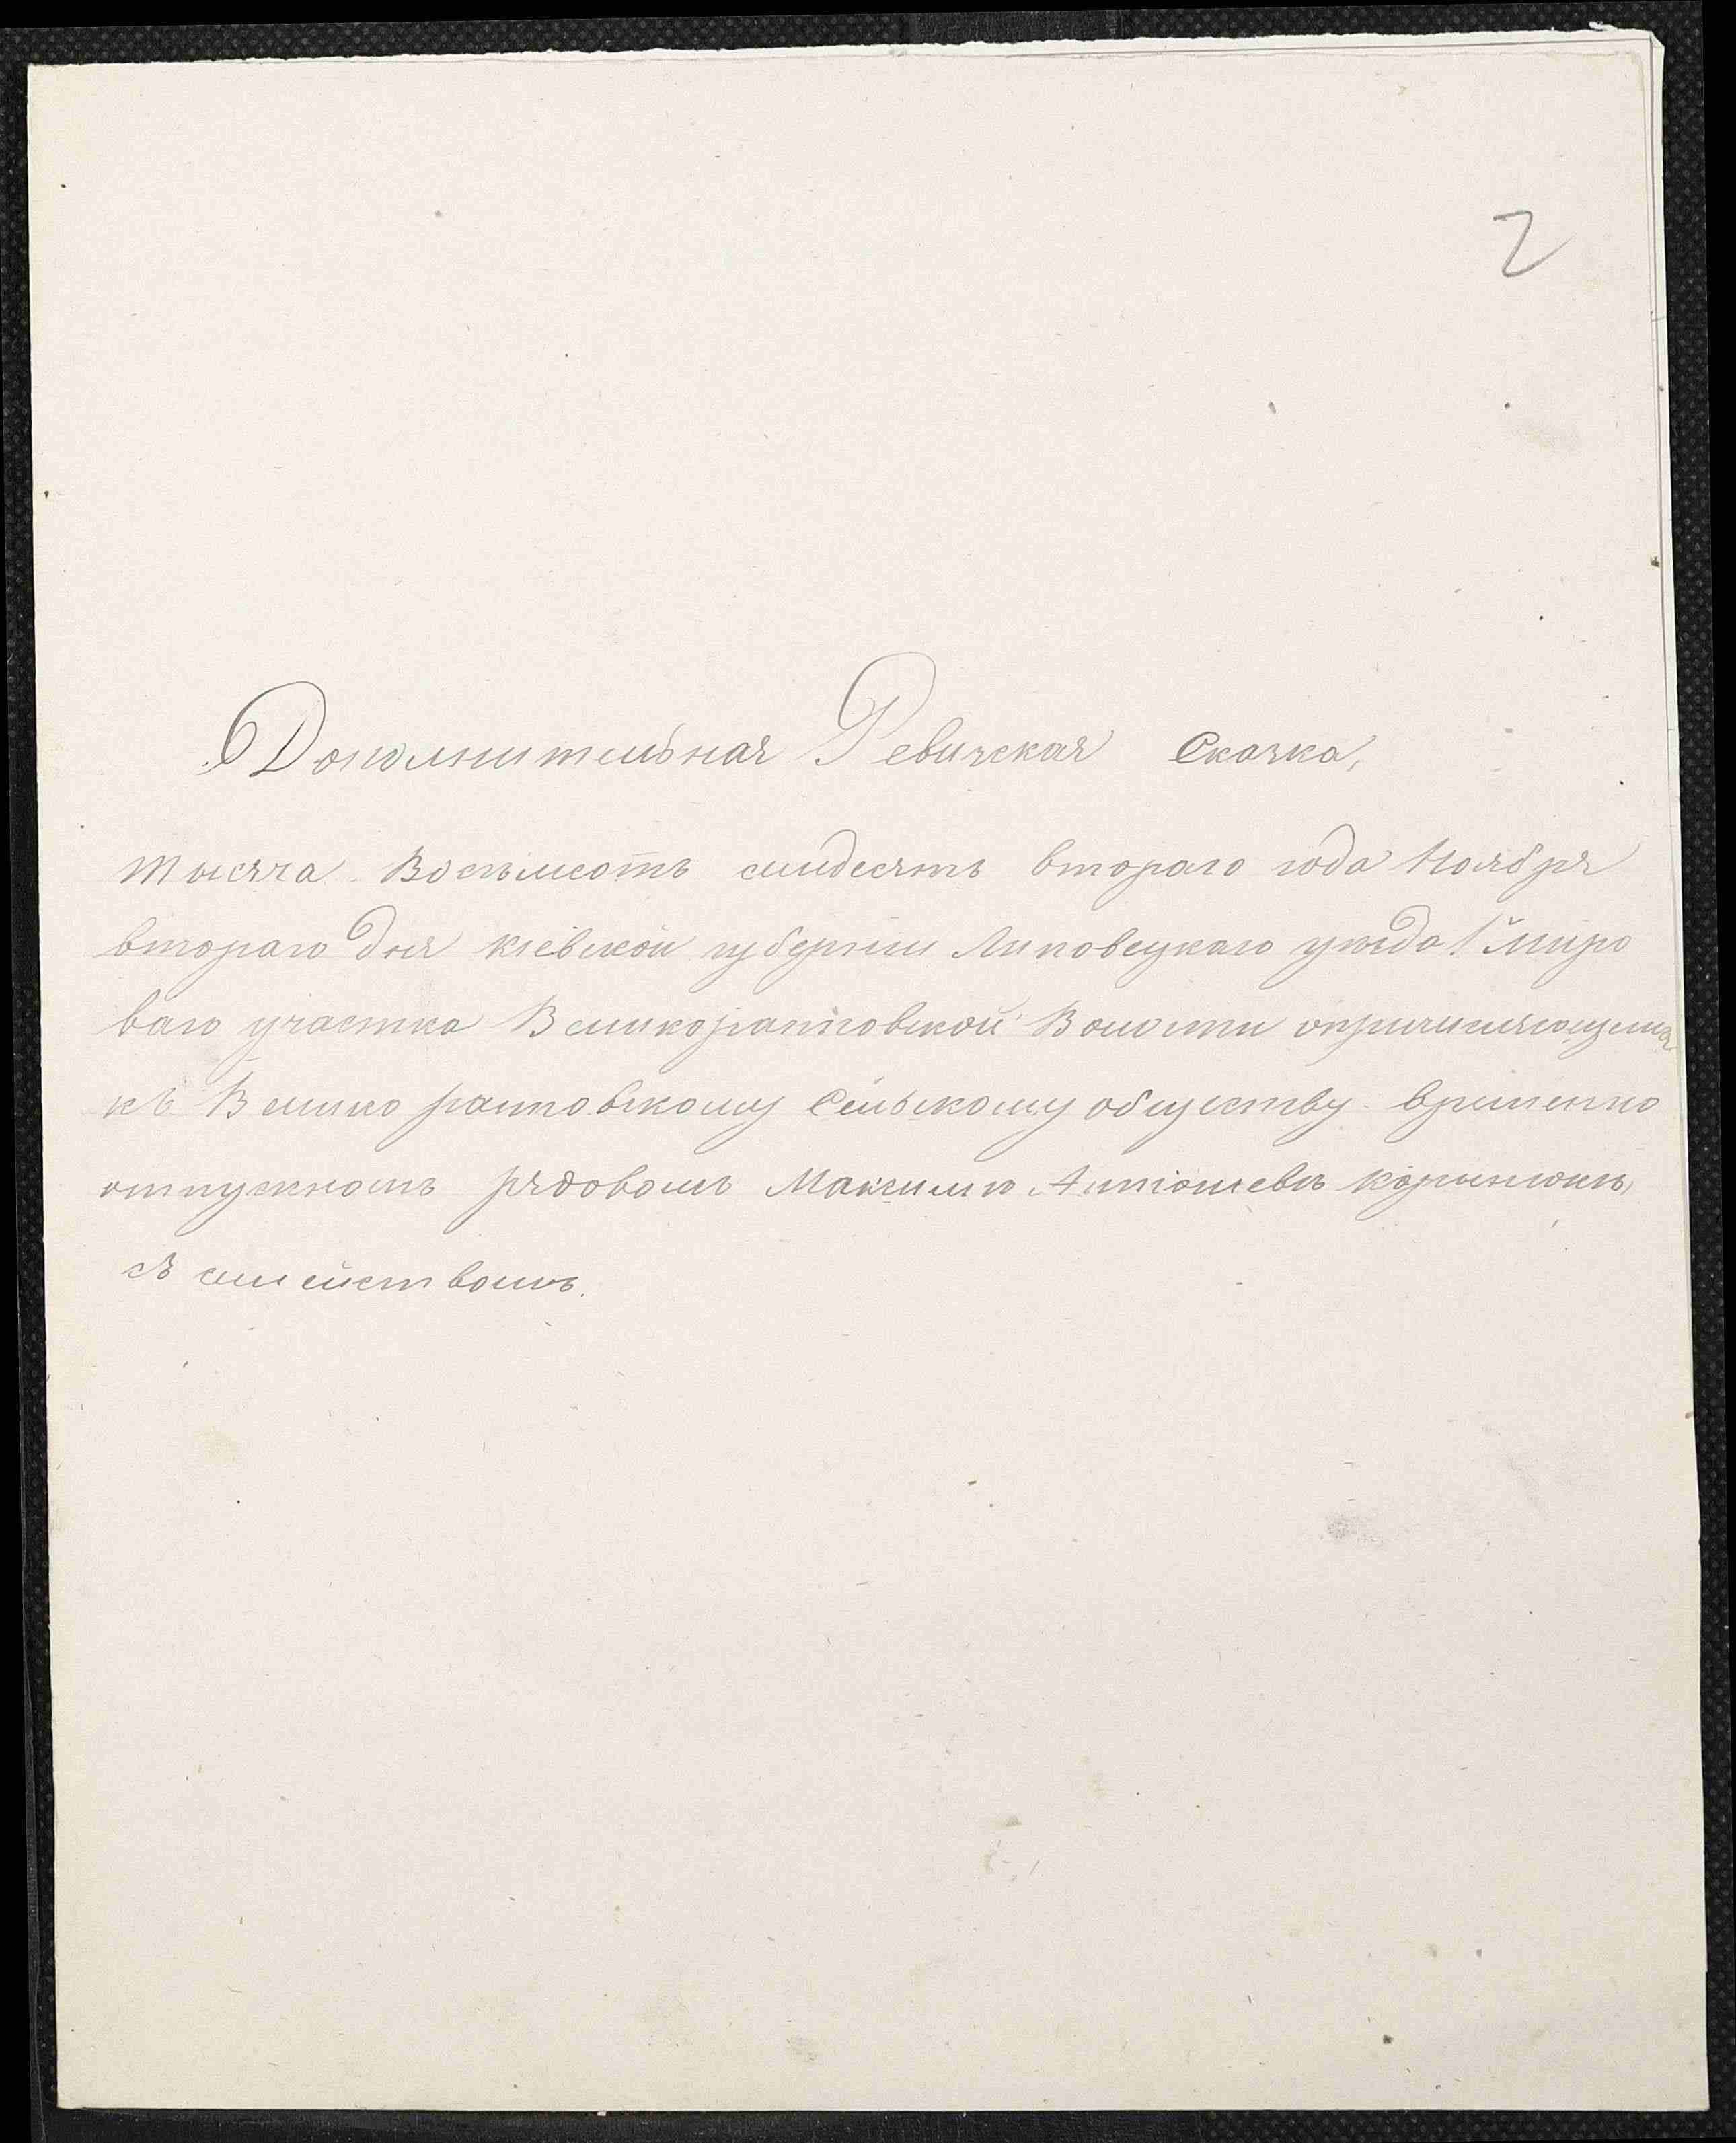 2
Дополнительная Ревизская Сказка,
тысяча Восемьсотъ семдесятъ втораго года Ноября
втораго дня кіевской губерніи Липовецкаго уезда 1й миро
ваго участка Великоростовской Волости опричисляющемся
къ Велико ростовскому Сельскому обществу временно
отпускномъ рядовомъ Максимъ Антіошевъ
съ семействомъ.